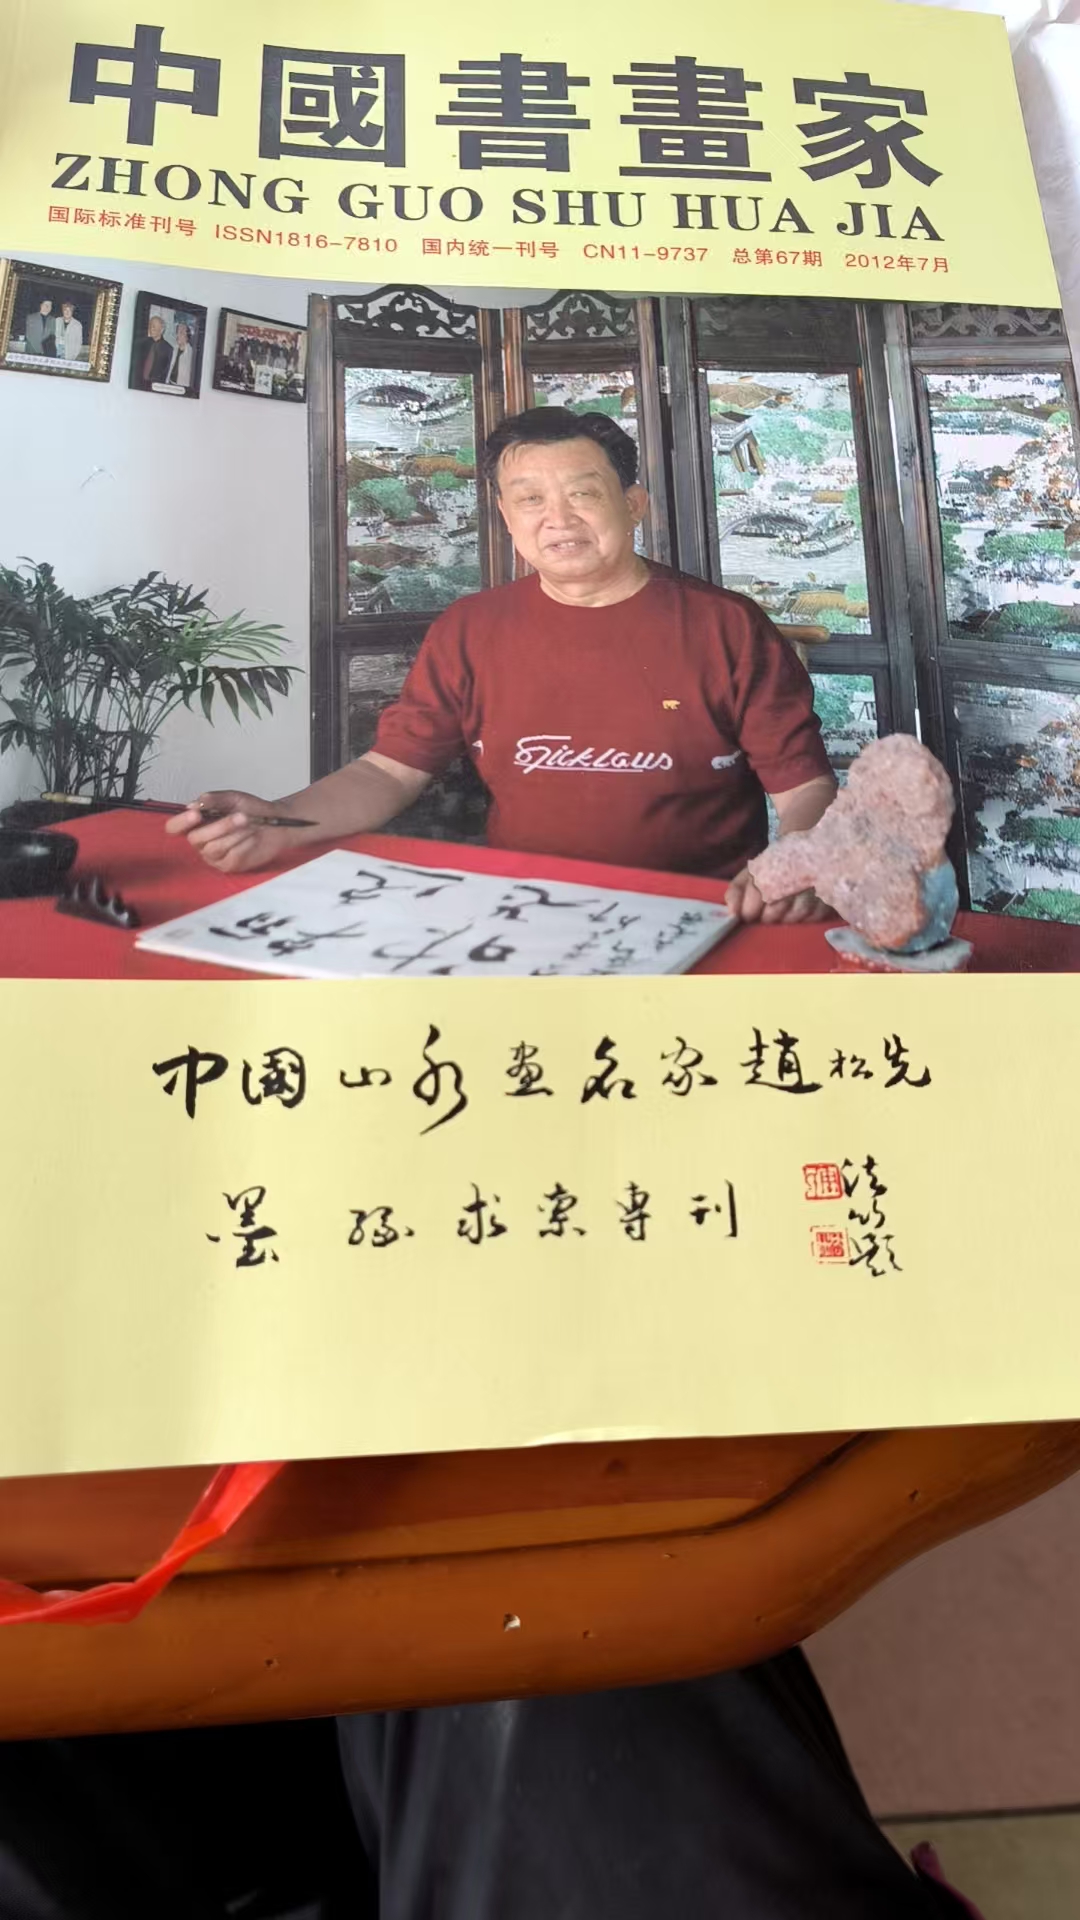 中國書畫家
ZHONG GUO SHU HUA JIA
国际标准刊号 ISSN1816-7810 国内统一刊号 CN11-9737 总第67期 2012年7月
Nicklaus
中国山水画名家趙松先
墨缘求索專刊
法竹题